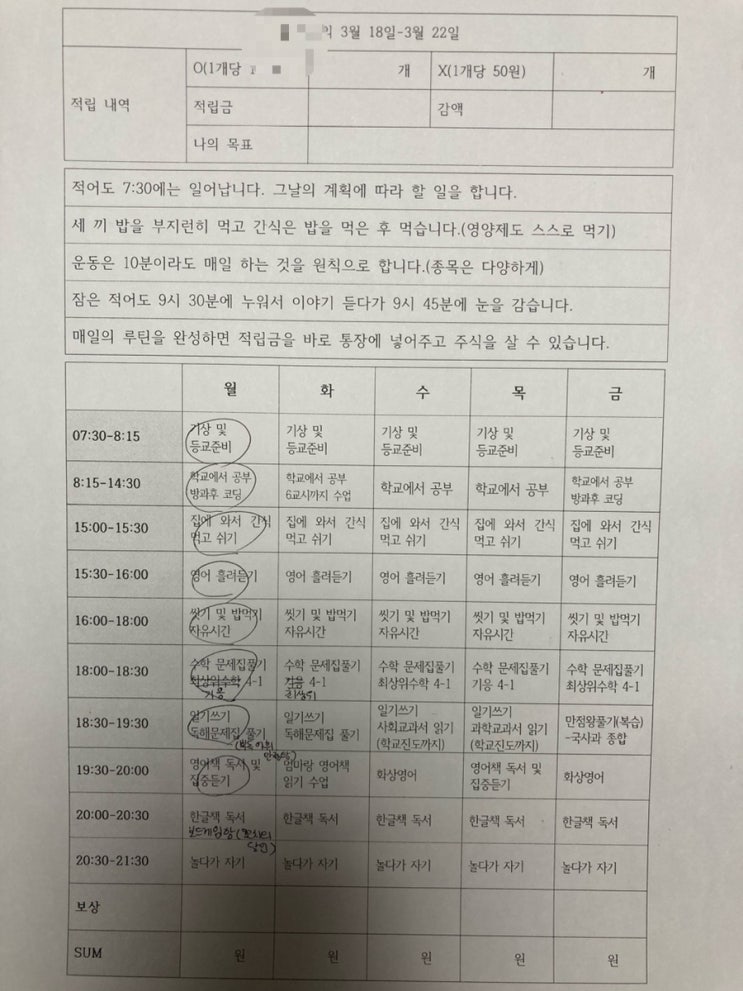 3월 18일-3월 22일
적립 내역
O(1개당
개
X(1개당 50원)
개
적립금
감액
나의 목표
적어도 7:30에는 일어납니다. 그날의 계획에 따라 할 일을 합니다.
세 끼 밥을 부지런히 먹고 간식은 밥을 먹은 후 먹습니다.(영양제도 스스로 먹기)
운동은 10분이라도 매일 하는 것을 원칙으로 합니다.(종목은 다양하게)
잠은 적어도 9시 30분에 누워서 이야기 듣다가 9시 45분에 눈을 감습니다.
매일의 루틴을 완성하면 적립금을 바로 통장에 넣어주고 주식을 살 수 있습니다.
월 화 수 목 금
07:30-8:15
기상 및
등교준비
기상 및
등교준비
기상 및
등교준비
기상 및
등교준비
기상 및
등교준비
8:15-14:30
학교에서 공부
방과후 코딩
학교에서 공부
6교시까지 수업
학교에서 공부
학교에서 공부
학교에서 공부
방과후 코딩
15:00-15:30
집에 와서 간식
먹고 쉬기
집에 와서 간식
먹고 쉬기
집에 와서 간식
먹고 쉬기
집에 와서 간식
먹고 쉬기
집에 와서 간식
먹고 쉬기
15:30-16:00
영어 흘려듣기
영어 흘려듣기
영어 흘려듣기
영어 흘려듣기
영어 흘려듣기
16:00-18:00
씻기 및 밥먹기
자유시간
씻기 및 밥먹기
자유시간
씻기 및 밥먹기
자유시간
씻기 및 밥먹기
자유시간
씻기 및 밥먹기
자유시간
18:00-18:30
수학 문제집풀기
최상위수학 4-1
기응
수학 문제집풀기
기응 4-1
최상위
수학 문제집풀기
최상위수학 4-1
수학 문제집풀기
기응 4-1
수학 문제집풀기
최상위수학 4-1
18:30-19:30
일기쓰기
독해문제집 풀기
일기쓰기
독해문제집 풀기
일기쓰기
사회교과서 읽기
(학교진도까지)
일기쓰기
과학교과서 읽기
(학교진도까지)
만점왕풀기(복습)
-국사과 종합
19:30-20:00
영어책 독서 및
집중듣기
엄마랑 영어책
읽기 수업
화상영어
영어책 독서 및
집중듣기
화상영어
20:00-20:30
한글책 독서
보드게임함
한글책 독서
한글책 독서
한글책 독서
한글책 독서
20:30-21:30
놀다가 자기
놀다가 자기
놀다가 자기
놀다가 자기
놀다가 자기
보상
SUM
원
원
원
원
원